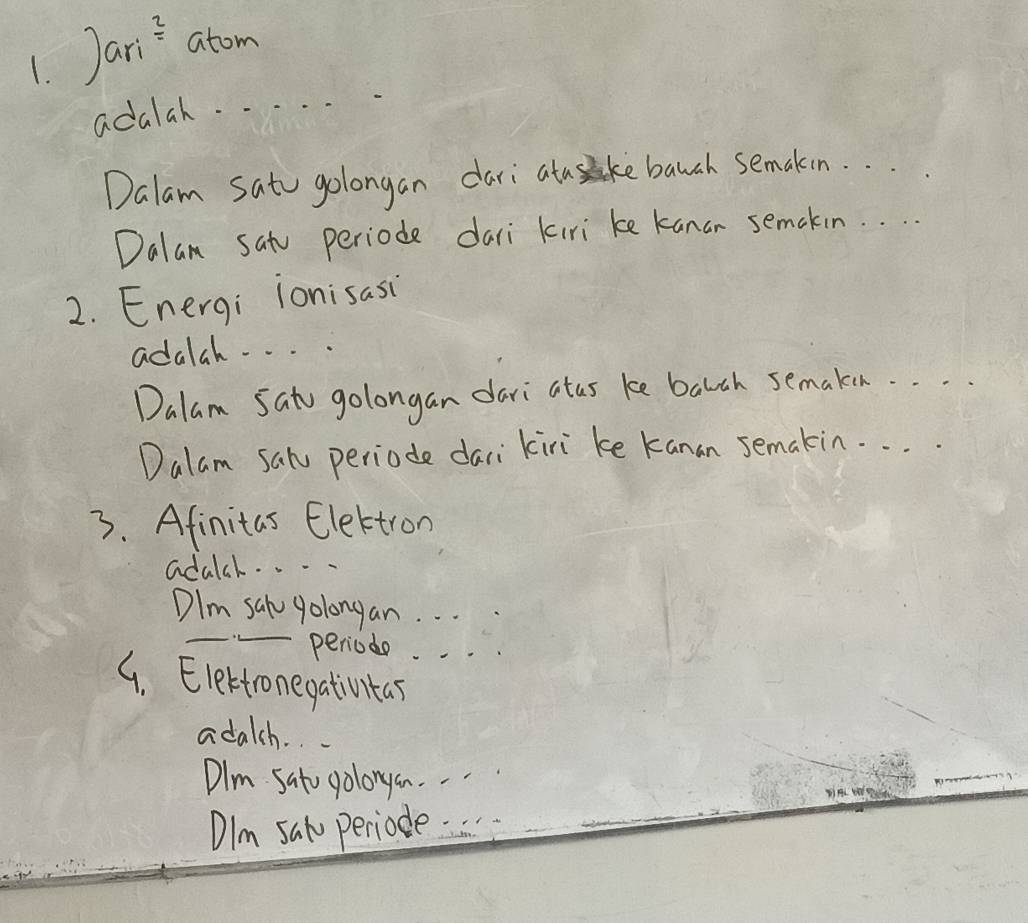 1. Jari² atom
adalah......
Dalam satu golongan dari atas ke bawah semakin....
Dalam satu periode dari kiri ke kanan semakin....
2. Energi ionisasi
adalah....
Dalam satu golongan dari atas ke bawah semakin....
Dalam satu periode dari kiri ke kanan semakin....
3. Afinitas Elektron
adalah....
Dlm satu golongan....
—"— periode....
4. Elektronegativitas
adalah...
Dlm satu golongan....
Dlm satu periode....